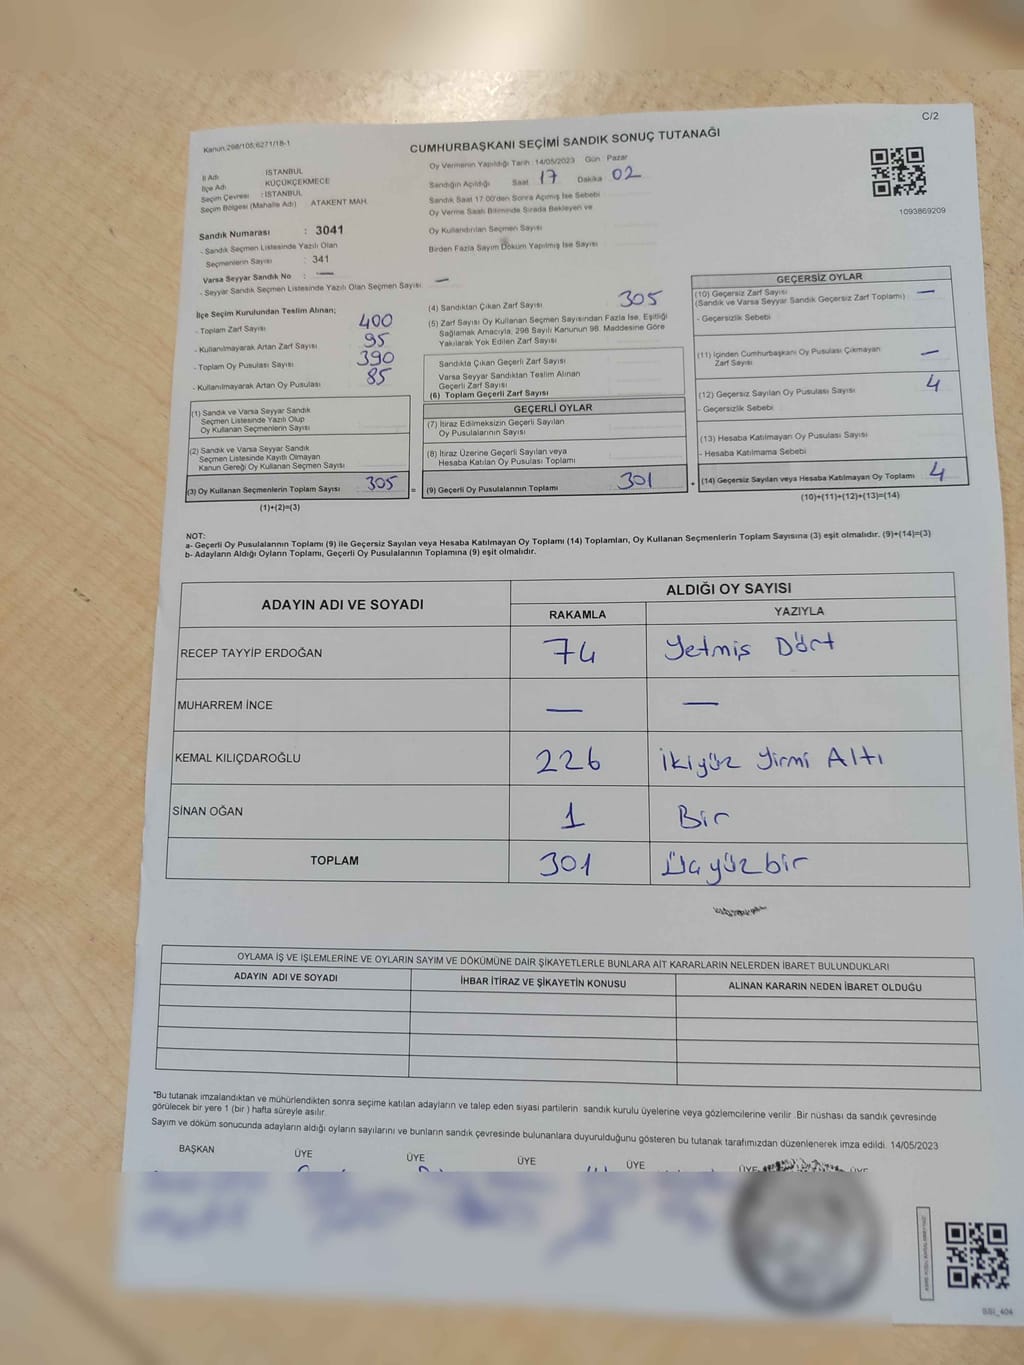 C/2
Kanun:298/105;6271/18-1
CUMHURBAŞKANI SEÇİMİ SANDIK SONUÇ TUTANAĞI
İl Adı İSTANBUL
İlçe Adı KÜÇÜKÇEKMECE
Seçim Çevresi : İSTANBUL
Seçim Bölgesi (Mahalle Adı) : ATAKENT MAH.
Oy Vermenin Yapıldığı Tarih : 14/05/2023 Gün Pazar
Sandığın Açıldığı Saat 17 Dakika 02
Sandık Saat 17:00'den Sonra Açılmış İse Sebebi
Oy Verme Saati Bitiminde Sırada Bekleyen ve
Oy Kullandırılan Seçmen Sayısı
Birden Fazla Sayım Döküm Yapılmış İse Sayısı
1093869209
Sandık Numarası : 3041
- Sandık Seçmen Listesinde Yazılı Olan
Seçmenlerin Sayısı : 341
Varsa Seyyar Sandık No : —
- Seyyar Sandık Seçmen Listesinde Yazılı Olan Seçmen Sayısı : —
İlçe Seçim Kurulundan Teslim Alınan;
- Toplam Zarf Sayısı 400
- Kullanılmayarak Artan Zarf Sayısı 95
- Toplam Oy Pusulası Sayısı 390
- Kullanılmayarak Artan Oy Pusulası 85
(1) Sandık ve Varsa Seyyar Sandık
Seçmen Listesinde Yazılı Olup
Oy Kullanan Seçmenlerin Sayısı
(2) Sandık ve Varsa Seyyar Sandık
Seçmen Listesinde Kayıtlı Olmayan
Kanun Gereği Oy Kullanan Seçmen Sayısı
(3) Oy Kullanan Seçmenlerin Toplam Sayısı 305
(1)+(2)=(3)
(4) Sandıktan Çıkan Zarf Sayısı 305
(5) Zarf Sayısı Oy Kullanan Seçmen Sayısından Fazla İse, Eşitliği
Sağlamak Amacıyla, 298 Sayılı Kanunun 98. Maddesine Göre
Yakılarak Yok Edilen Zarf Sayısı
Sandıkta Çıkan Geçerli Zarf Sayısı
Varsa Seyyar Sandıktan Teslim Alınan
Geçerli Zarf Sayısı
(6) Toplam Geçerli Zarf Sayısı
GEÇERLİ OYLAR
(7) İtiraz Edilmeksizin Geçerli Sayılan
Oy Pusulalarının Sayısı
(8) İtiraz Üzerine Geçerli Sayılan veya
Hesaba Katılan Oy Pusulası Toplamı
= (9) Geçerli Oy Pusulalarının Toplamı 301
GEÇERSİZ OYLAR
(10) Geçersiz Zarf Sayısı —
(Sandık ve Varsa Seyyar Sandık Geçersiz Zarf Toplamı)
- Geçersizlik Sebebi
(11) İçinden Cumhurbaşkanı Oy Pusulası Çıkmayan —
Zarf Sayısı
(12) Geçersiz Sayılan Oy Pusulası Sayısı 4
- Geçersizlik Sebebi :
(13) Hesaba Katılmayan Oy Pusulası Sayısı
- Hesaba Katılmama Sebebi
+ (14) Geçersiz Sayılan veya Hesaba Katılmayan Oy Toplamı 4
(10)+(11)+(12)+(13)=(14)
NOT:
a- Geçerli Oy Pusulalarının Toplamı (9) ile Geçersiz Sayılan veya Hesaba Katılmayan Oy Toplamı (14) Toplamları, Oy Kullanan Seçmenlerin Toplam Sayısına (3) eşit olmalıdır. (9)+(14)=(3)
b- Adayların Aldığı Oyların Toplamı, Geçerli Oy Pusulalarının Toplamına (9) eşit olmalıdır.
ADAYIN ADI VE SOYADI ALDIĞI OY SAYISI
RAKAMLA YAZIYLA
RECEP TAYYİP ERDOĞAN 74 Yetmiş Dört
MUHARREM İNCE — —
KEMAL KILIÇDAROĞLU 226 İkiyüz Yirmi Altı
SİNAN OĞAN 1 Bir
TOPLAM 301 Üçyüzbir
OYLAMA İŞ VE İŞLEMLERİNE VE OYLARIN SAYIM VE DÖKÜMÜNE DAİR ŞİKAYETLERLE BUNLARA AİT KARARLARIN NELERDEN İBARET BULUNDUKLARI
ADAYIN ADI VE SOYADI İHBAR İTİRAZ VE ŞİKAYETİN KONUSU ALINAN KARARIN NEDEN İBARET OLDUĞU
*Bu tutanak imzalandıktan ve mühürlendikten sonra seçime katılan adayların ve talep eden siyasi partilerin sandık kurulu üyelerine veya gözlemcilerine verilir. Bir nüshası da sandık çevresinde
görülecek bir yere 1 (bir) hafta süreyle asılır.
Sayım ve döküm sonucunda adayların aldığı oyların sayılarını ve bunların sandık çevresinde bulunanlara duyurulduğunu gösteren bu tutanak tarafımızdan düzenlenerek imza edildi. 14/05/2023
BAŞKAN ÜYE ÜYE ÜYE ÜYE ÜYE ÜYE